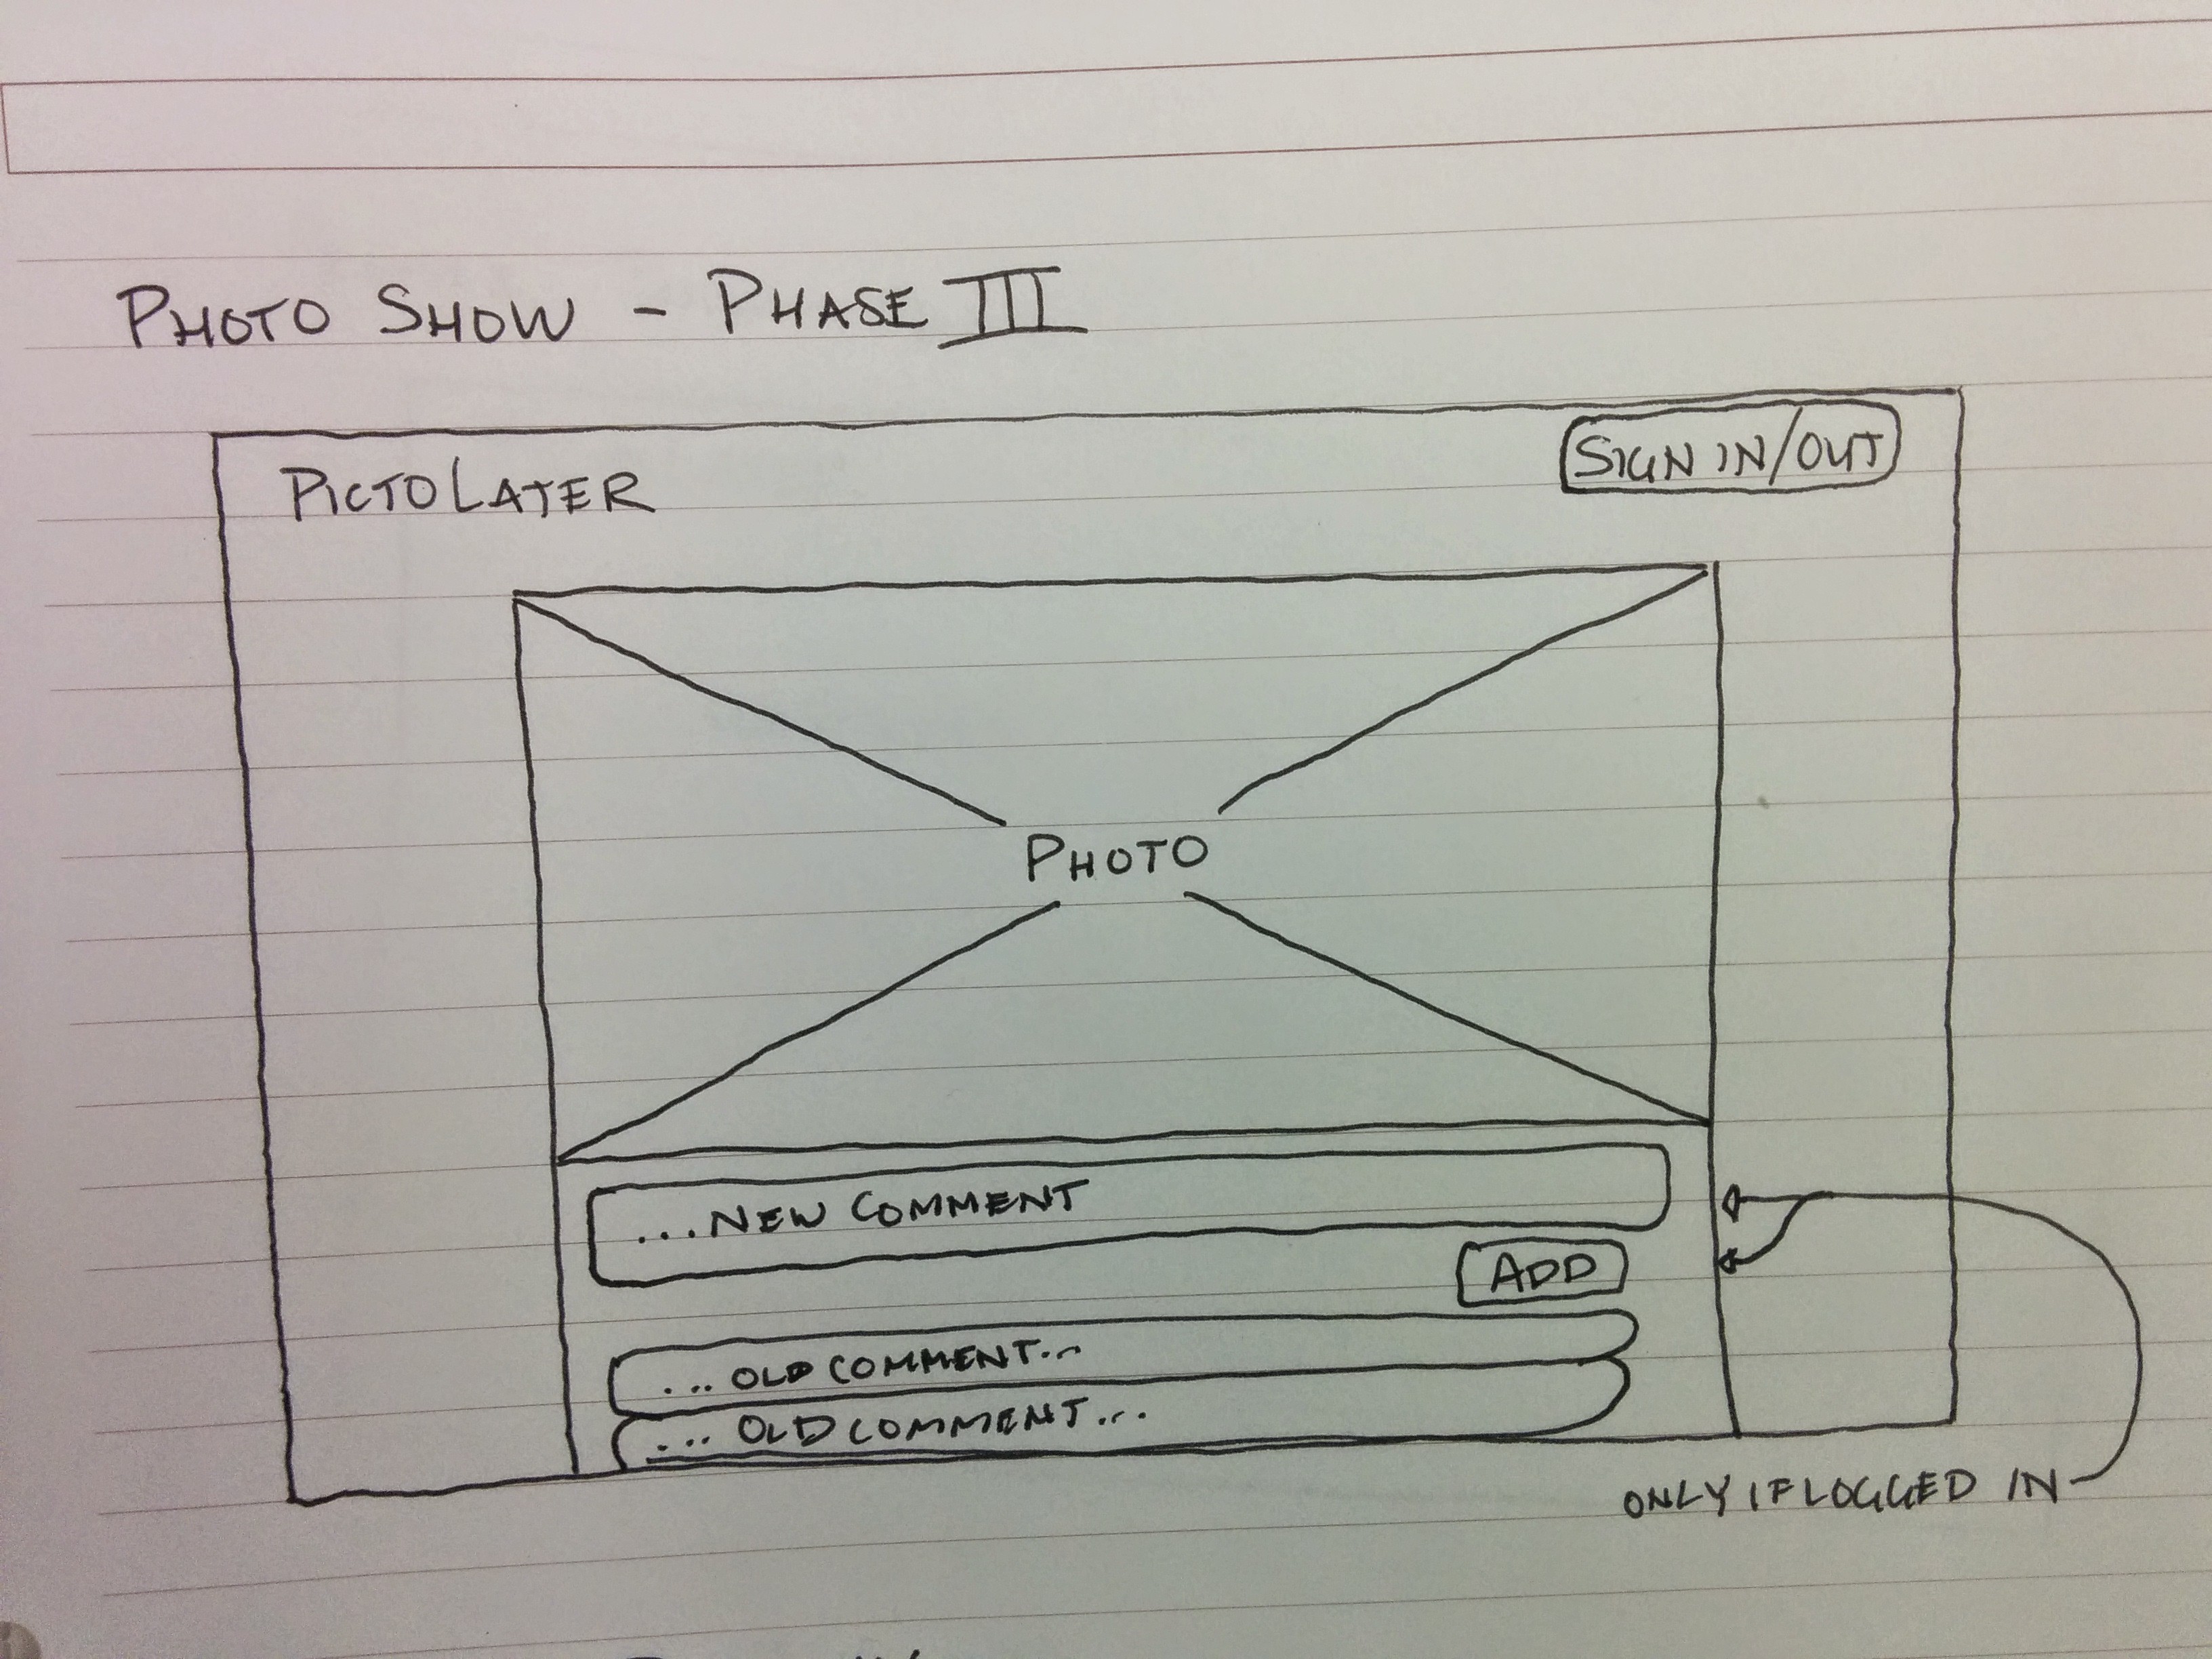 PHOTO SHOW - PHASE III
PICTOLATER
SIGN IN/OUT
PHOTO
...NEW COMMENT
ADD
... OLD COMMENT...
... OLD COMMENT...
ONLY IF LOGGED IN